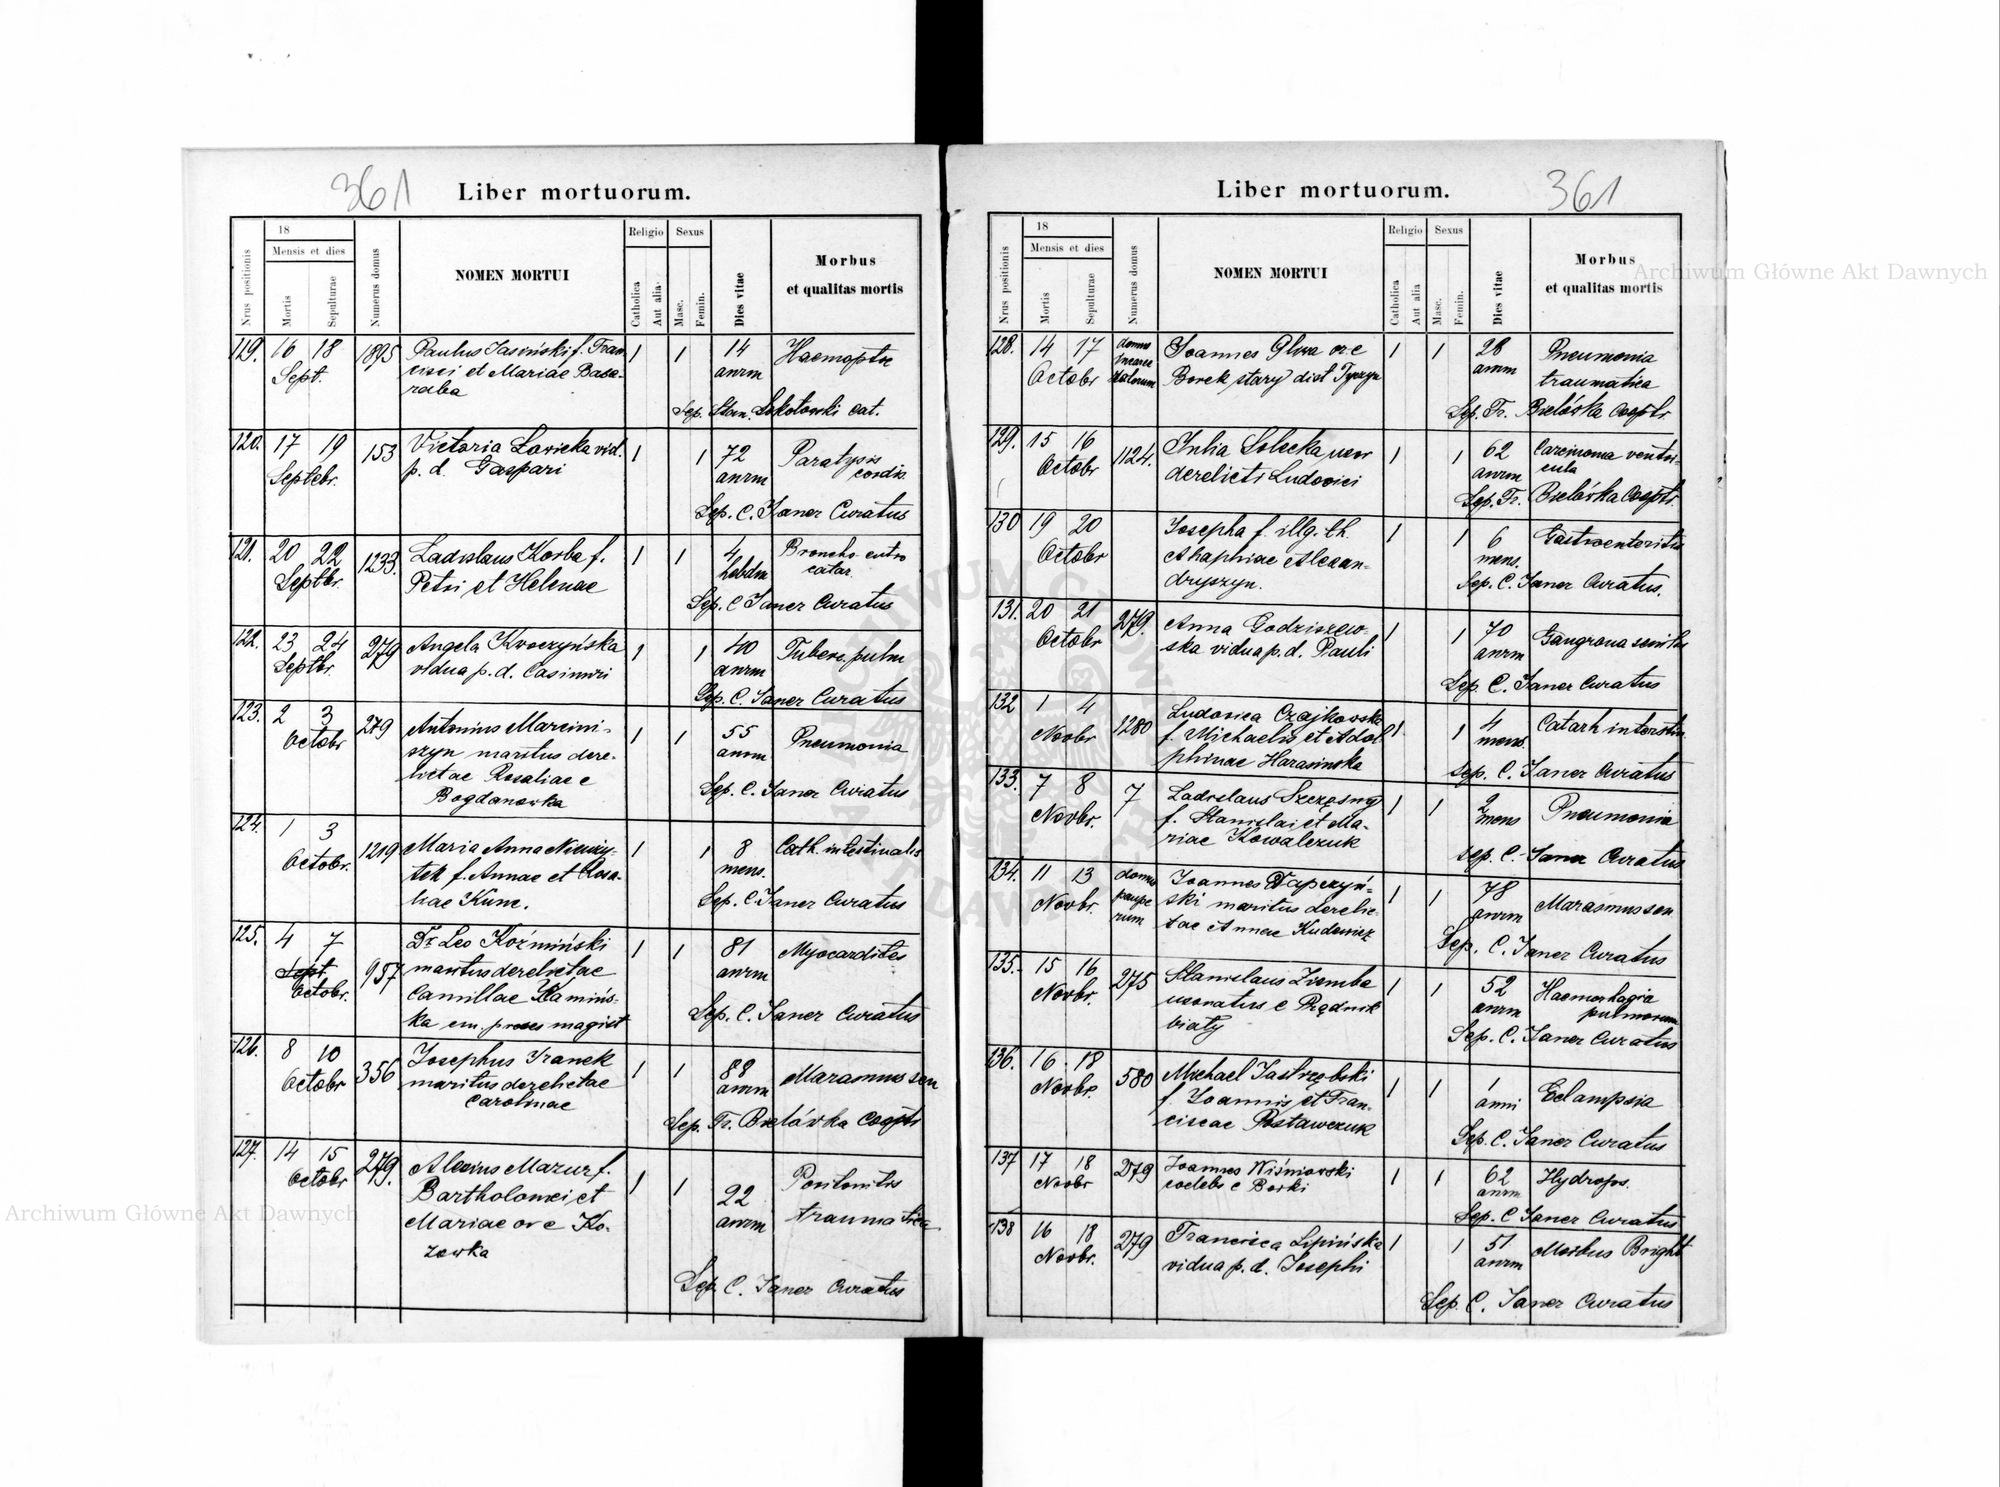 361
Liber mortuorum.
Nrus positionis
18
Mensis et dies
Mortis
Sepulturae
Numerus domus
NOMEN MORTUI
Religio
Catholica
Aut alia
Sexus
Masc.
Femin.
Dies vitae
Morbus
et qualitas mortis
119. 16 18 1895 Paulus Jasiński f. Fran-
Sept. cisci et Mariae Basa-
raba
1 1 14
annm
Haemoptoe
Sep. Stan. Sokołowski cat.
120. 17 19 153 Victoria Ławicka vid.
Septebr. p. d. Gaspari
1 1 72
annm
Paralysis
cordis
Sep. C. Janer Curatus
121. 20 22 1233. Ladislaus Korba f.
Septbr. Petri et Helenae
1 1 4
hebdm
Broncho entro
catar.
Sep. C Janer Curatus
122. 23 24 279 Angela Kroczyńska
Septbr. vidua p. d. Casimiri
1 1 40
annm
Tuberc. pulm
Sep. C. Janer Curatus
123. 2 3 279 Antonius Marcini-
Octobr szyn maritus dere-
lictae Rosaliae e
Bogdanówka
1 1 55
annm
Pneumonia
Sep. C. Janer Curatus
124. 1 3 1219 Maria Anna
Octobr. tek f. Annae et Rosa-
liae Kunc.
1 1 8
mens.
Cath. intestinalis
Sep. C. Janer Curatus
125. 4 7 957 Dr. Leo Koźmiński
Sept. maritus derelictae
Octobr. Camillae Kamińs-
ka em. praeses magist
1 1 81
annm
Myocarditis
Sep. C. Janer Curatus
126. 8 10 356 Josephus Franek
Octobr maritus derelictae
Carolinae
1 1 88
annm
Marasmus sen
Sep. Fr. Bielówka Cooptr
127. 14 15 279. Alexius Mazur f.
Octobr Bartholomei et
Mariae or e Ko-
zowka
1 1 22
annm
Peritonitis
traumatica
Sep. C. Janer Curatus
361
Liber mortuorum.
Nrus positionis
18
Mensis et dies
Mortis
Sepulturae
Numerus domus
NOMEN MORTUI
Religio
Catholica
Aut alia
Sexus
Masc.
Femin.
Dies vitae
Morbus
et qualitas mortis
128. 14 17 domus Joannes Głowa or e
Octobr Borek stary dist Tyczyn
1 1 28
annm
Pneumonia
traumatica
Sep. Fr. Bielówka Cooptr
129. 15 16 1124. Julia Solecka uxor
Octobr derelicti Ludovici
1 1 62
annm
Carcinoma ventri-
cula
Sep. Fr. Bielówka Cooptr.
130 19 20 Josepha f. illg. th.
Octobr Ahaphiae Alexan-
dryszyn.
1 1 6
mens.
Gastroenteritis
Sep. C. Janer Curatus.
131. 20 21 279. Anna Godziszew-
Octobr ska vidua p. d. Pauli
1 1 70
annm
Gangrena senilis
Sep. C. Janer Curatus
132 1 4 1280 Ludovica Czajkowska
Novbr f. Michaelis et Adol-
phinae Harasinska
1 1 4
mens.
Catarh intestin.
Sep. C. Janer Curatus
133. 7 8 7 Ladislaus Szczęsny
Novbr. f. Stanislai et Ma-
riae Kowalczuk
1 1 2
mens
Pneumonia
Sep. C. Janer Curatus
134. 11 13 domus Joannes Papczyń-
Novbr. paupe ski maritus derelic-
rum tae Annae Kudewicz
1 1 78
annm
Marasmus sen
Sep. C. Janer Curatus
135. 15 16 275 Stanislaus Ziemba
Novbr. uxoratus e Prądnik
biały
1 1 52
annm
Haemorhagia
pulmonum
Sep. C. Janer Curatus
136. 16 18 580 Michael Jastrzębski
Novbr. f. Joannis et Fran-
ciscae Postawczuk
1 1 1
anni
Eclampsia
Sep. C. Janer Curatus
137 17 18 279 Joannes Wiśniowski
Novbr coelebs e Borki
1 1 62
annm
Hydrops.
Sep. C Janer Curatus
138 16 18 279 Francisca Lipińska
Novbr. vidua p. d. Josephi
1 1 51
annm
Morbus Bright
Sep. C. Janer Curatus
Archiwum Główne Akt Dawnych
Archiwum Główne Akt Dawnych